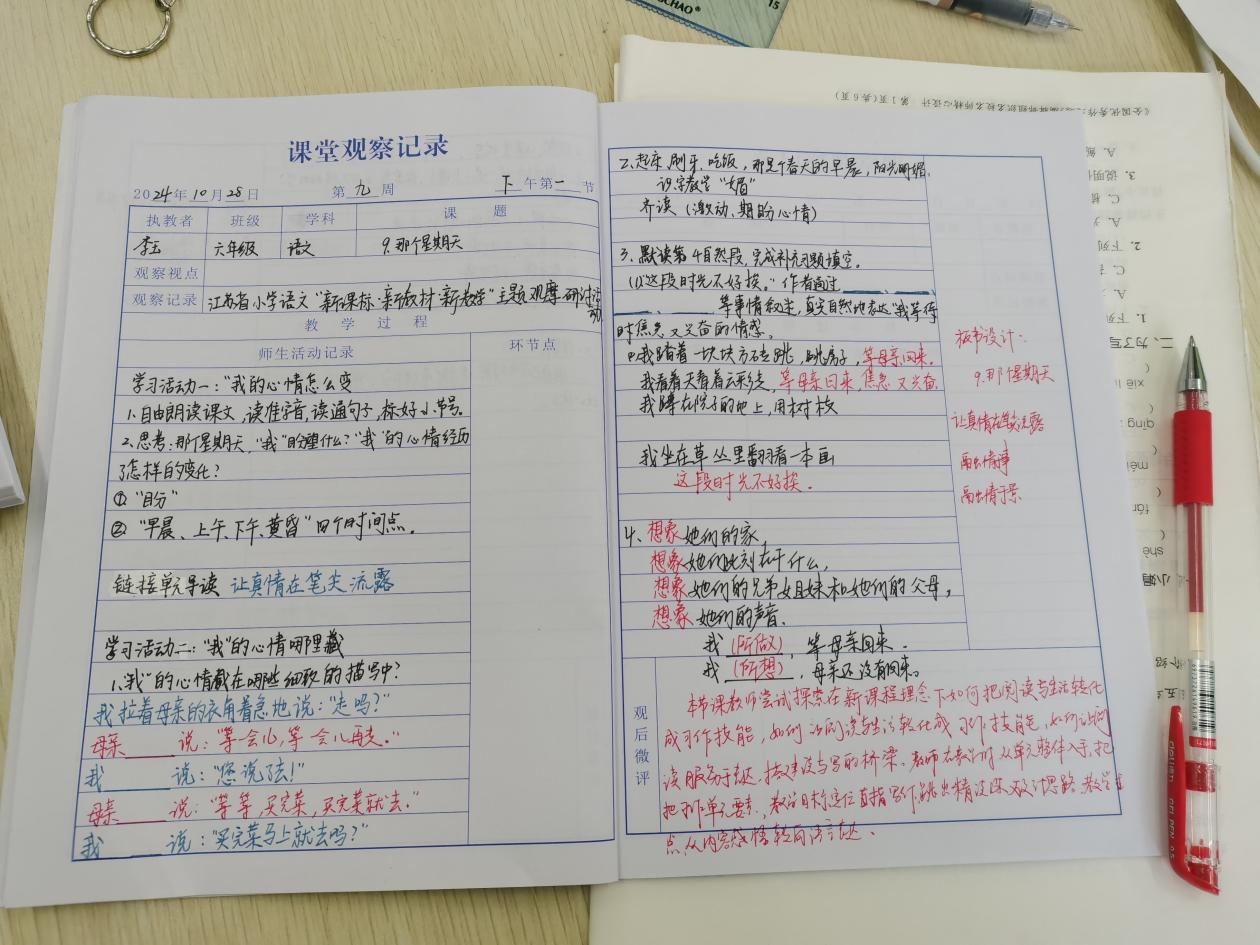 课堂观察记录
2024年10月28日 第九周 下午第一节
执教者 班级 学科 课题
李玉 六年级 语文 9.那个星期天
观察视点
观察记录 江苏省小学语文"新课标·新教材·新教学"主题观摩研讨活动
教学过程
师生活动记录 环节点
学习活动一:"我的心情怎么变
1.自由朗读课文,读准字音,读通句子,标好小节号。
2.思考:那个星期天,"我"盼望什么?"我"的心情经历
了怎样的变化?
①"盼"
②"早晨、上午、下午、黄昏"四个时间点.
链接单元导读 让真情在笔尖流露
学习活动二:"我"的心情哪里藏
1."我"的心情藏在哪些细致的描写中?
我拉着母亲的衣角着急地说:"走吗?"
母亲____说:"等一会儿,等一会儿再走."
我____说:"您说了去!"
母亲____说:"等等,买完菜,买完菜就去."
我____说:"买完菜马上就去吗?"
2.起床,刷牙、吃饭,那是个春天的早晨,阳光明媚.
识字教学"媚"
齐读(激动、期盼心情)
3.默读第4自然段,完成补充习题填空.
(1)"这段时光不好挨."作者通过____、____、
____、____等事情叙述,真实自然地表达"我"等待
时焦急又兴奋的情感.
我踏着一块块方砖跳,跳房子,等母亲回来.
我看着天看着云彩走,等母亲回来,焦急又兴奋.
我蹲在院子的地上,用树枝
我坐在草丛里翻看一本画
这段时光不好挨.
4、想象她们的家,
想象她们此刻在干什么,
想象她们的兄弟姐妹和她们的父母,
想象她们的声音.
我(所做),等母亲回来.
我(所想),母亲还没有回来.
板书设计:
9.那个星期天
让真情在笔尖流露
画出情事
画出情于景
观后微评
本节课教师尝试探索在新课程理念下如何把阅读与生活转化
成习作技能,如何让阅读与生活转化成习作技能,如何让阅
读服务于表达,搭建读与写的桥梁.教师在教学时,从单元整体入手,把
把握单元要素,教学目标定位直指写作,跳出精读课文设计思路,教学重
点从内容感悟转向语言表达.
《全国优秀作 第1页(共6页)
SCHAO
15
deli
GEL PEN 0.5